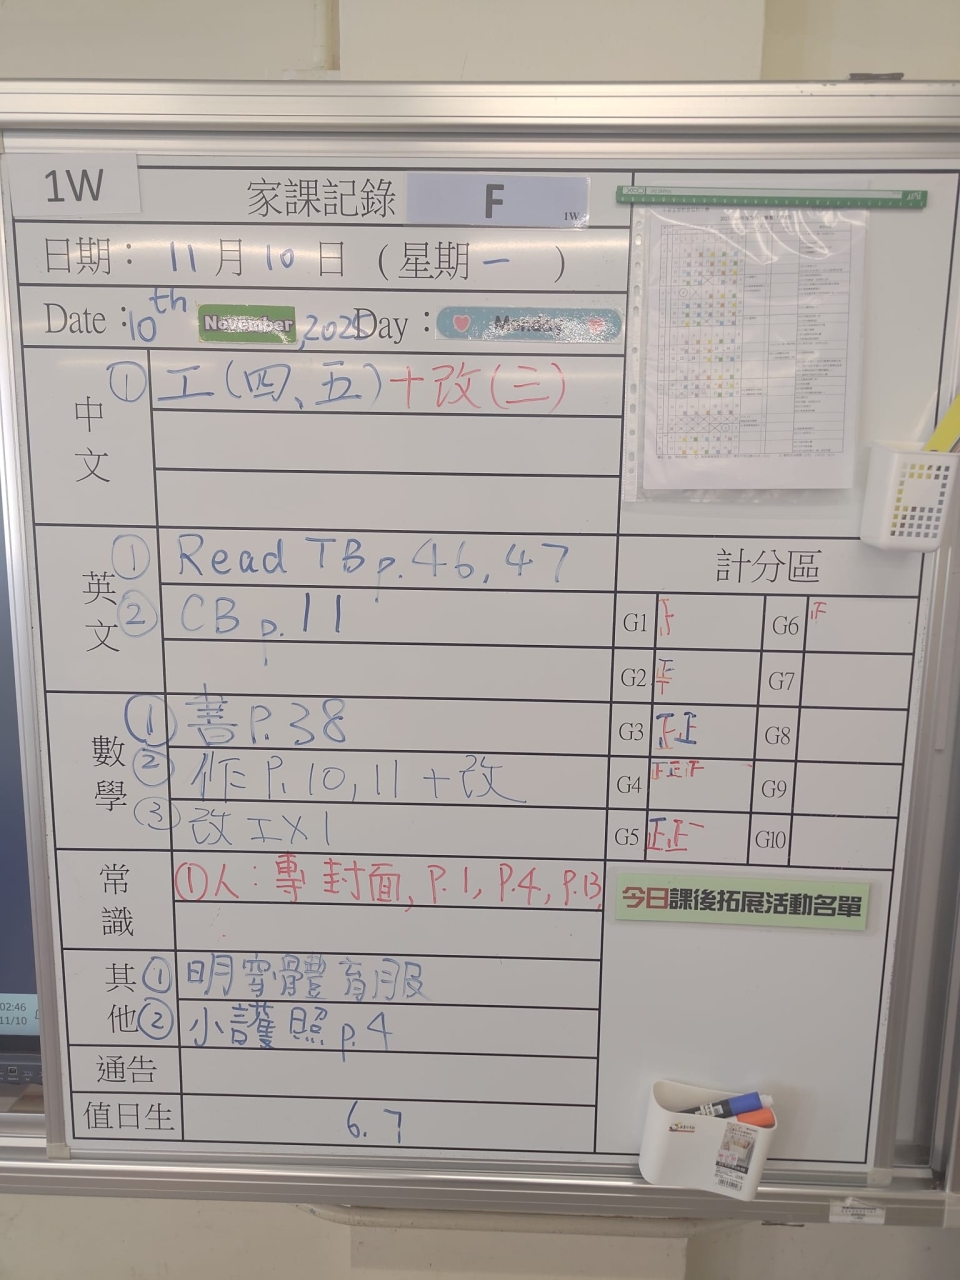 1W
家課記錄 F 1W
日期： 11 月 10 日 （星期 一 ）
Date : 10th November, 2025 Day : Monday
中文
① 工(四、五)+改(三)
英文
① Read TB p.46, 47
② CB p.11
數學
① 書P.38
② 作P.10, 11+改
③ 改工X1
常識
①人：專封面, P.1, P.4, P.13
其他
①明穿體育服
②小護照p.4
通告
值日生 6. 7
計分區
G1 G6 正
G2 正丅 G7
G3 正正 G8
G4 正正正 G9
G5 正正一 G10
今日課後拓展活動名單
02:46
11/10